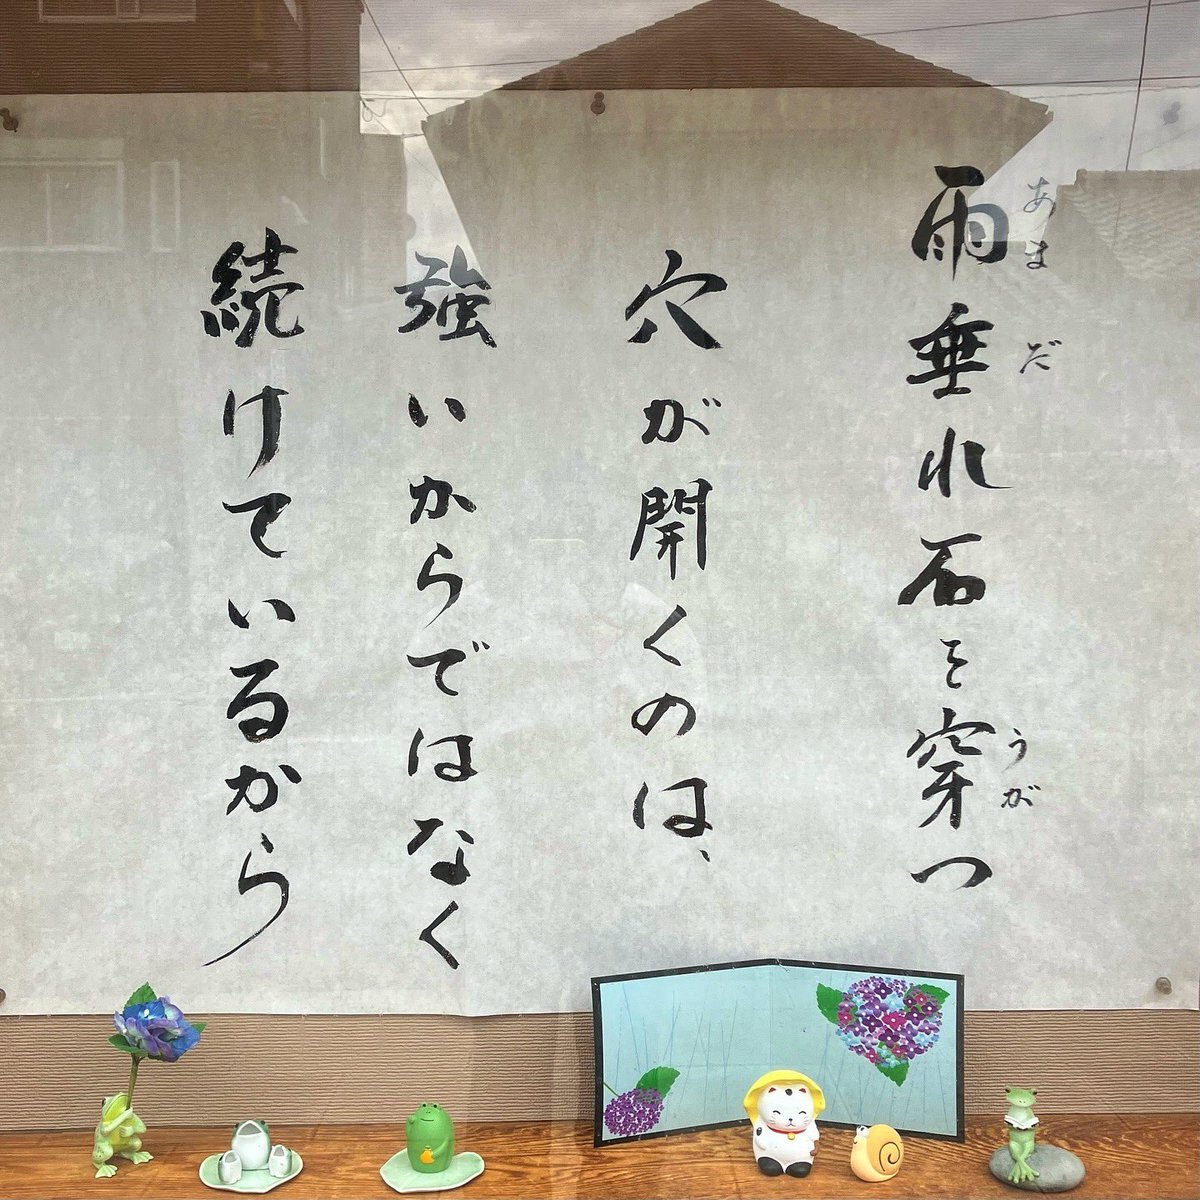 雨垂れ石を穿つ
あまだ
うが
穴が開くのは、
強いからではなく
続けているから